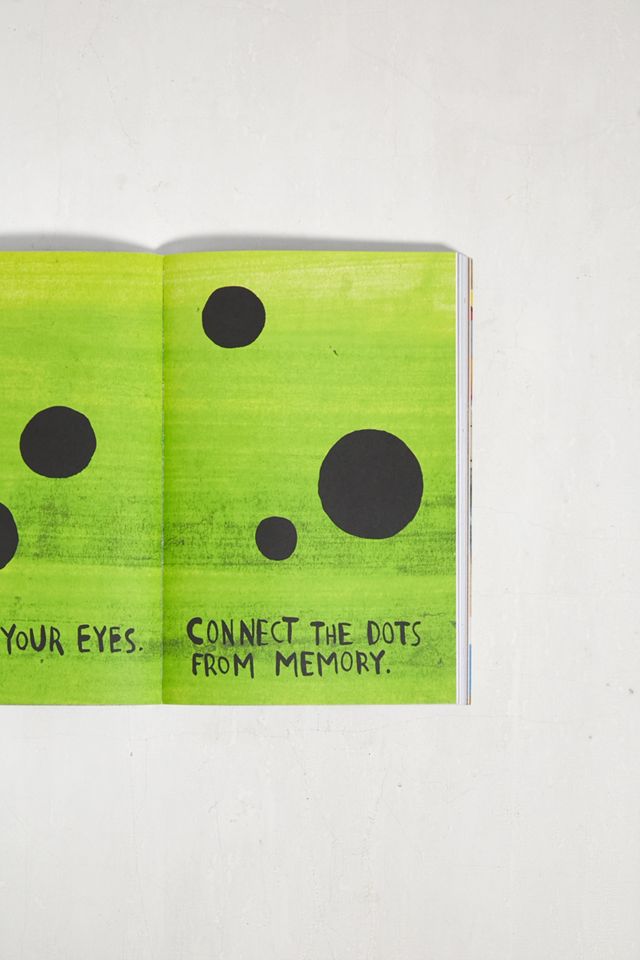 YOUR EYES.
CONNECT THE DOTS
FROM MEMORY.